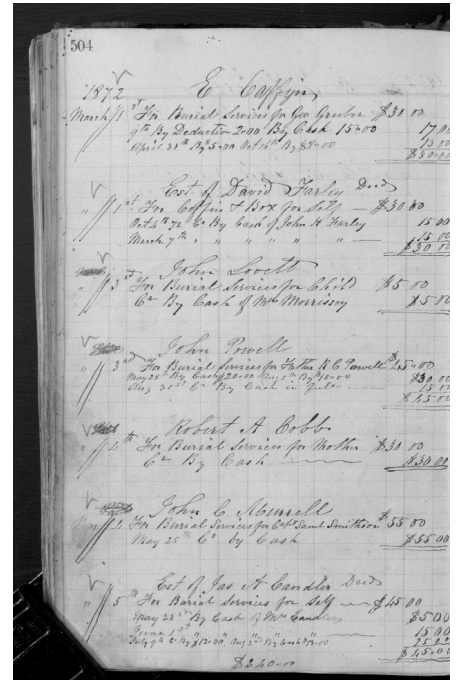 504
1872 E Caffyn
March 1st For Burial Services for Geo Gruber $30.00
9th By Deduction 2.00 By Cash 15.00 17 00
April By 5.00 Oct By $8.00 13 00
$30.00
Est. of David Farley Decd
" 1st For Coffin & Box for Self $30 00
Oct 4th 72 Cr By Cash of John H Farley 15 00
March 7th " " " " " 15 00
$30 00
John Lovett
" 3rd For Burial Services for Child $5 00
Cr By Cash of Mrs Morrissey $5.00
John Powell
" 3rd For Burial Services for Father R C Powell $45.00
May 28th By Cash 20.00 Aug By $10.00 $30 00
Aug 31st Cr By Cash in full 15 00
$45 00
Robert A Cobbs
" 4th For Burial Services for Mother $30 00
Cr By Cash $30 00
John C Murrell
4 For Burial Services for Capt Saml Smithson $55 00
May 25th Cr by Cash $55.00
Est of Jas A Candler Decd
" 5th For Burial Services for Self $45.00
May 23rd By Cash of Mrs Candler $5 00
June 1st " " " 15 00
July 9th Cr By $12.00, Aug 2nd By Cash $13.00 25 00
$45.00
$240.00